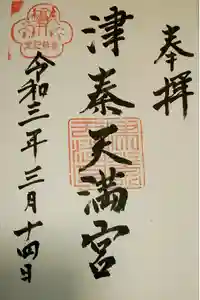 奉拝
津秦天満宮
令和三年三月十四日